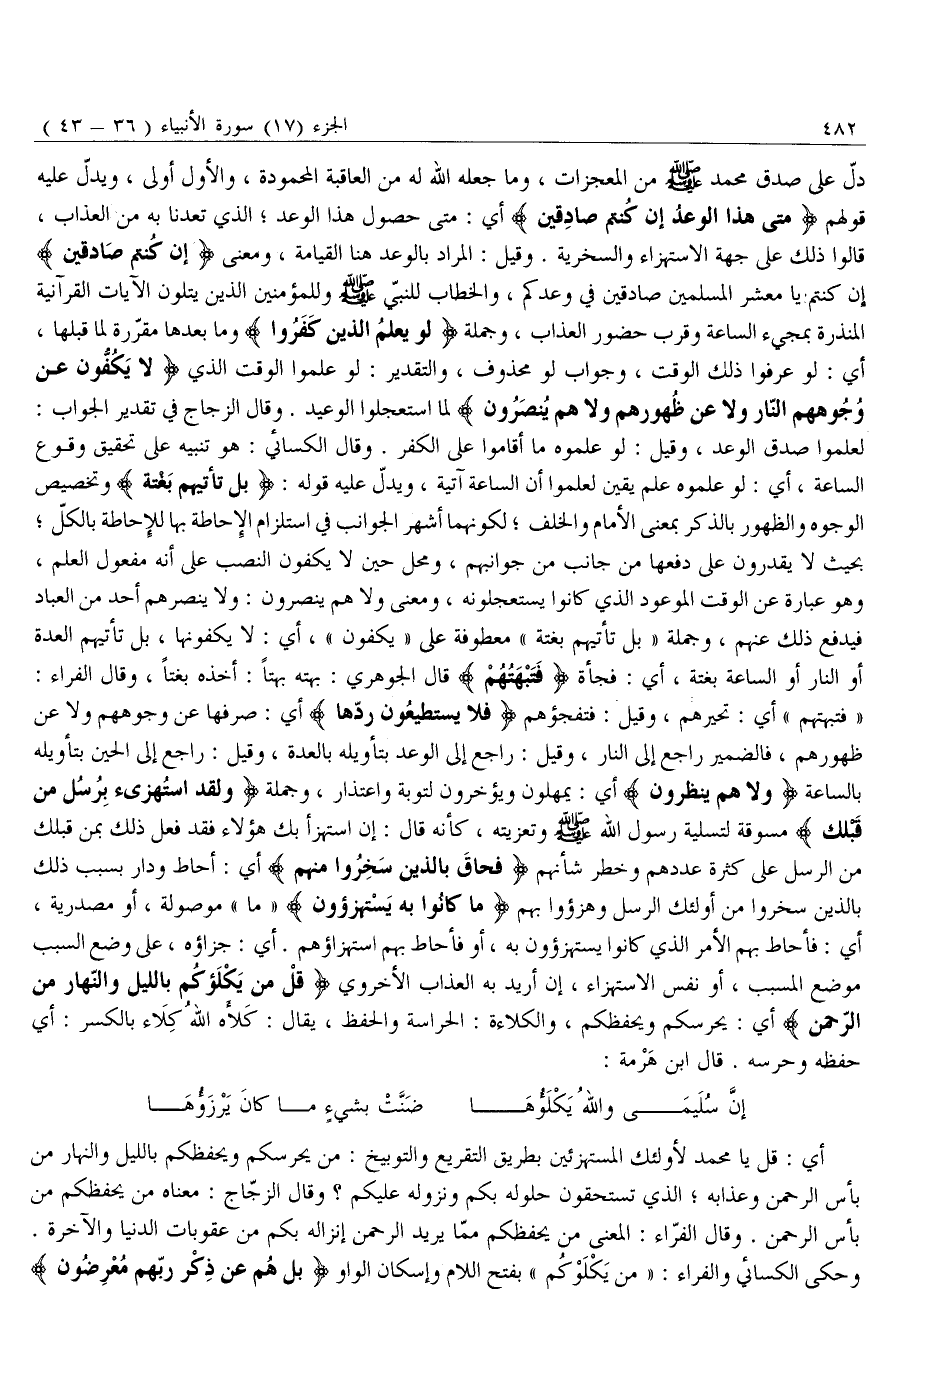 ٤٨٢ الجزء (١٧) سورة الأنبياء ( ٣٦ – ٤٣ )
دلّ على صدق محمد ﷺ من المعجزات ، وما جعله الله له من العاقبة المحمودة ، والأول أولى ، ويدلّ عليه
قولهم ﴿ متى هذا الوعدُ إن كُنتم صادِقين ﴾ أي : متى حصول هذا الوعد ؛ الذي تعدنا به من العذاب ،
قالوا ذلك على جهة الاستهزاء والسخرية . وقيل : المراد بالوعد هنا القيامة ، ومعنى ﴿ إن كُنتم صَادقين ﴾
إن كنتم يا معشر المسلمين صادقين في وعدكم ، والخطاب للنبيّ ﷺ وللمؤمنين الذين يتلون الآيات القرآنية
المنذرة بمجيء الساعة وقرب حضور العذاب ، وجملة ﴿ لو يعلمُ الذين كَفَرُوا ﴾ وما بعدها مقرّرة لما قبلها ،
أي : لو عرفوا ذلك الوقت ، وجواب لو محذوف ، والتقدير : لو علموا الوقت الذي ﴿ لا يَكُفُّون عـن
وُجُوههم النّار ولا عن ظُهورهم ولا هم يُنصَرُون ﴾ لما استعجلوا الوعيد . وقال الزجاج في تقدير الجواب :
لعلموا صدق الوعد ، وقيل : لو علموه ما أقاموا على الكفر . وقال الكسائي : هو تنبيه على تحقيق وقـوع
الساعة ، أي : لو علموه علم يقين لعلموا أن الساعة آتية ، ويدلّ عليه قوله : ﴿ بل تأتيهم بَغْتة ﴾ وتخصيص
الوجوه والظهور بالذكر بمعنى الأمام والخلف ؛ لكونهما أشهر الجوانب في استلزام الإحاطة بها للإحاطة بالكلّ ؛
بحيث لا يقدرون على دفعها من جانب من جوانبهم ، ومحل حين لا يكفون النصب على أنه مفعول العلم ،
وهو عبارة عن الوقت الموعود الذي كانوا يستعجلونه ، ومعنى ولا هم ينصرون : ولا ينصرهم أحد من العباد
فيدفع ذلك عنهم ، وجملة « بل تأتيهم بغتة » معطوفة على « يكفون » ، أي : لا يكفونها ، بل تأتيهم العدة
أو النار أو الساعة بغتة ، أي : فجأة ﴿ فَتَبْهَتُهُمْ ﴾ قال الجوهري : بهته بهتاً : أخذه بغتاً ، وقال الفراء :
« فتبهتهم » أي : تحيرهم ، وقيل : فتفجؤهم ﴿ فلا يستطيعُون ردّها ﴾ أي : صرفها عن وجوههم ولا عن
ظهورهم ، فالضمير راجع إلى النار ، وقيل : راجع إلى الوعد بتأويله بالعدة ، وقيل : راجع إلى الحين بتأويله
بالساعة ﴿ ولا هم ينظرون ﴾ أي : يمهلون ويؤخرون لتوبة واعتذار ، وجملة ﴿ ولقد استُهزىء بِرُسُل من
قَبْلك ﴾ مسوقة لتسلية رسول الله ﷺ وتعزيته ، كأنه قال : إن استهزأ بك هؤلاء فقد فعل ذلك بمن قبلك
من الرسل على كثرة عددهم وخطر شأنهم ﴿ فحاقَ بالذين سَخِرُوا منهم ﴾ أي : أحاط ودار بسبب ذلك
بالذين سخروا من أولئك الرسل وهزؤوا بهم ﴿ ما كانُوا به يَسْتهزؤون ﴾ « ما » موصولة ، أو مصدرية ،
أي : فأحاط بهم الأمر الذي كانوا يستهزؤون به ، أو فأحاط بهم استهزاؤهم . أي : جزاؤه ، على وضع السبب
موضع المسبب ، أو نفس الاستهزاء ، إن أريد به العذاب الأخروي ﴿ قلْ من يَكْلَؤكُم بالليل والنّهار من
الرّحمن ﴾ أي : يحرسكم ويحفظكم ، والكلاءة : الحراسة والحفظ ، يقال : كَلأَه اللهُ كِلاء بالكسر : أي
حفظه وحرسه . قال ابن هَرْمة :
إنَّ سُلَيمَـــى واللهُ يَكْلَؤُهَـــا ضنَنَّتْ بشيءٍ مـا كانَ يَرْزَؤُهَـا
أي : قل يا محمد لأولئك المستهزئين بطريق التقريع والتوبيخ : من يحرسكم ويحفظكم بالليل والنهار من
بأس الرحمن وعذابه ؛ الذي تستحقون حلوله بكم ونزوله عليكم ؟ وقال الزجّاج : معناه من يحفظكم من
بأس الرحمن . وقال الفرّاء : المعنى من يحفظكم ممّا يريد الرحمن إنزاله بكم من عقوبات الدنيا والآخرة .
وحكى الكسائي والفراء : « من يَكْلَوْكُم » بفتح اللام وإسكان الواو ﴿ بل هُم عن ذِكْر ربّهم مُعْرِضُون ﴾